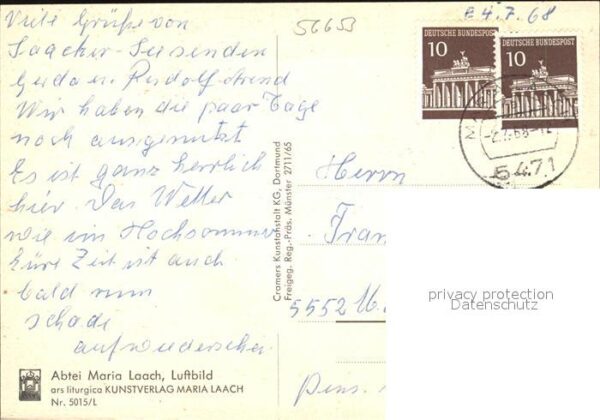 Viele Grüße von
Laacher-See senden
Rudolf
Wir haben die paar Tage
noch ausgenutzt
Es ist ganz herrlich
hier. Das Wetter
wie im Hochsommer
Zeit ist auch
bald nun
schade
aufwiedersehen
56653
E 4.7.68
10
DEUTSCHE BUNDESPOST
10
DEUTSCHE BUNDESPOST
5471
Herrn
Fran
5552
Cramers Kunstanstalt KG, Dortmund
Freigeg. Reg.-Präs. Münster 2711/65
privacy protection
Datenschutz
Abtei Maria Laach, Luftbild
ars liturgica KUNSTVERLAG MARIA LAACH
Nr. 5015/L